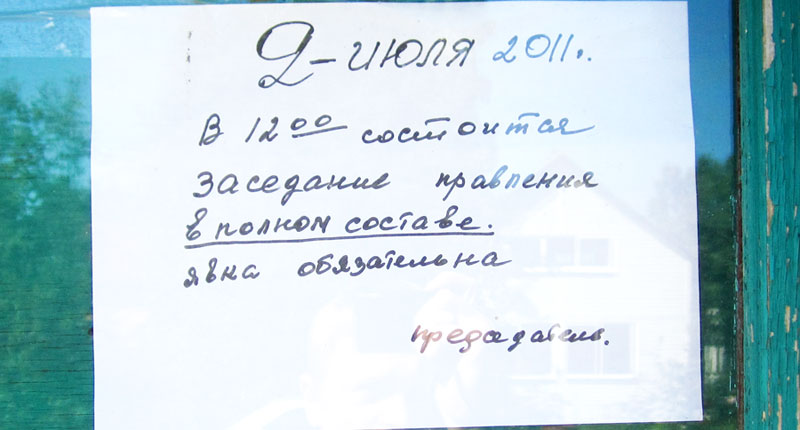 2-июля 2011г.
В 12⁰⁰ состоится
заседание правления
в полном составе.
явка обязательна
председатель.